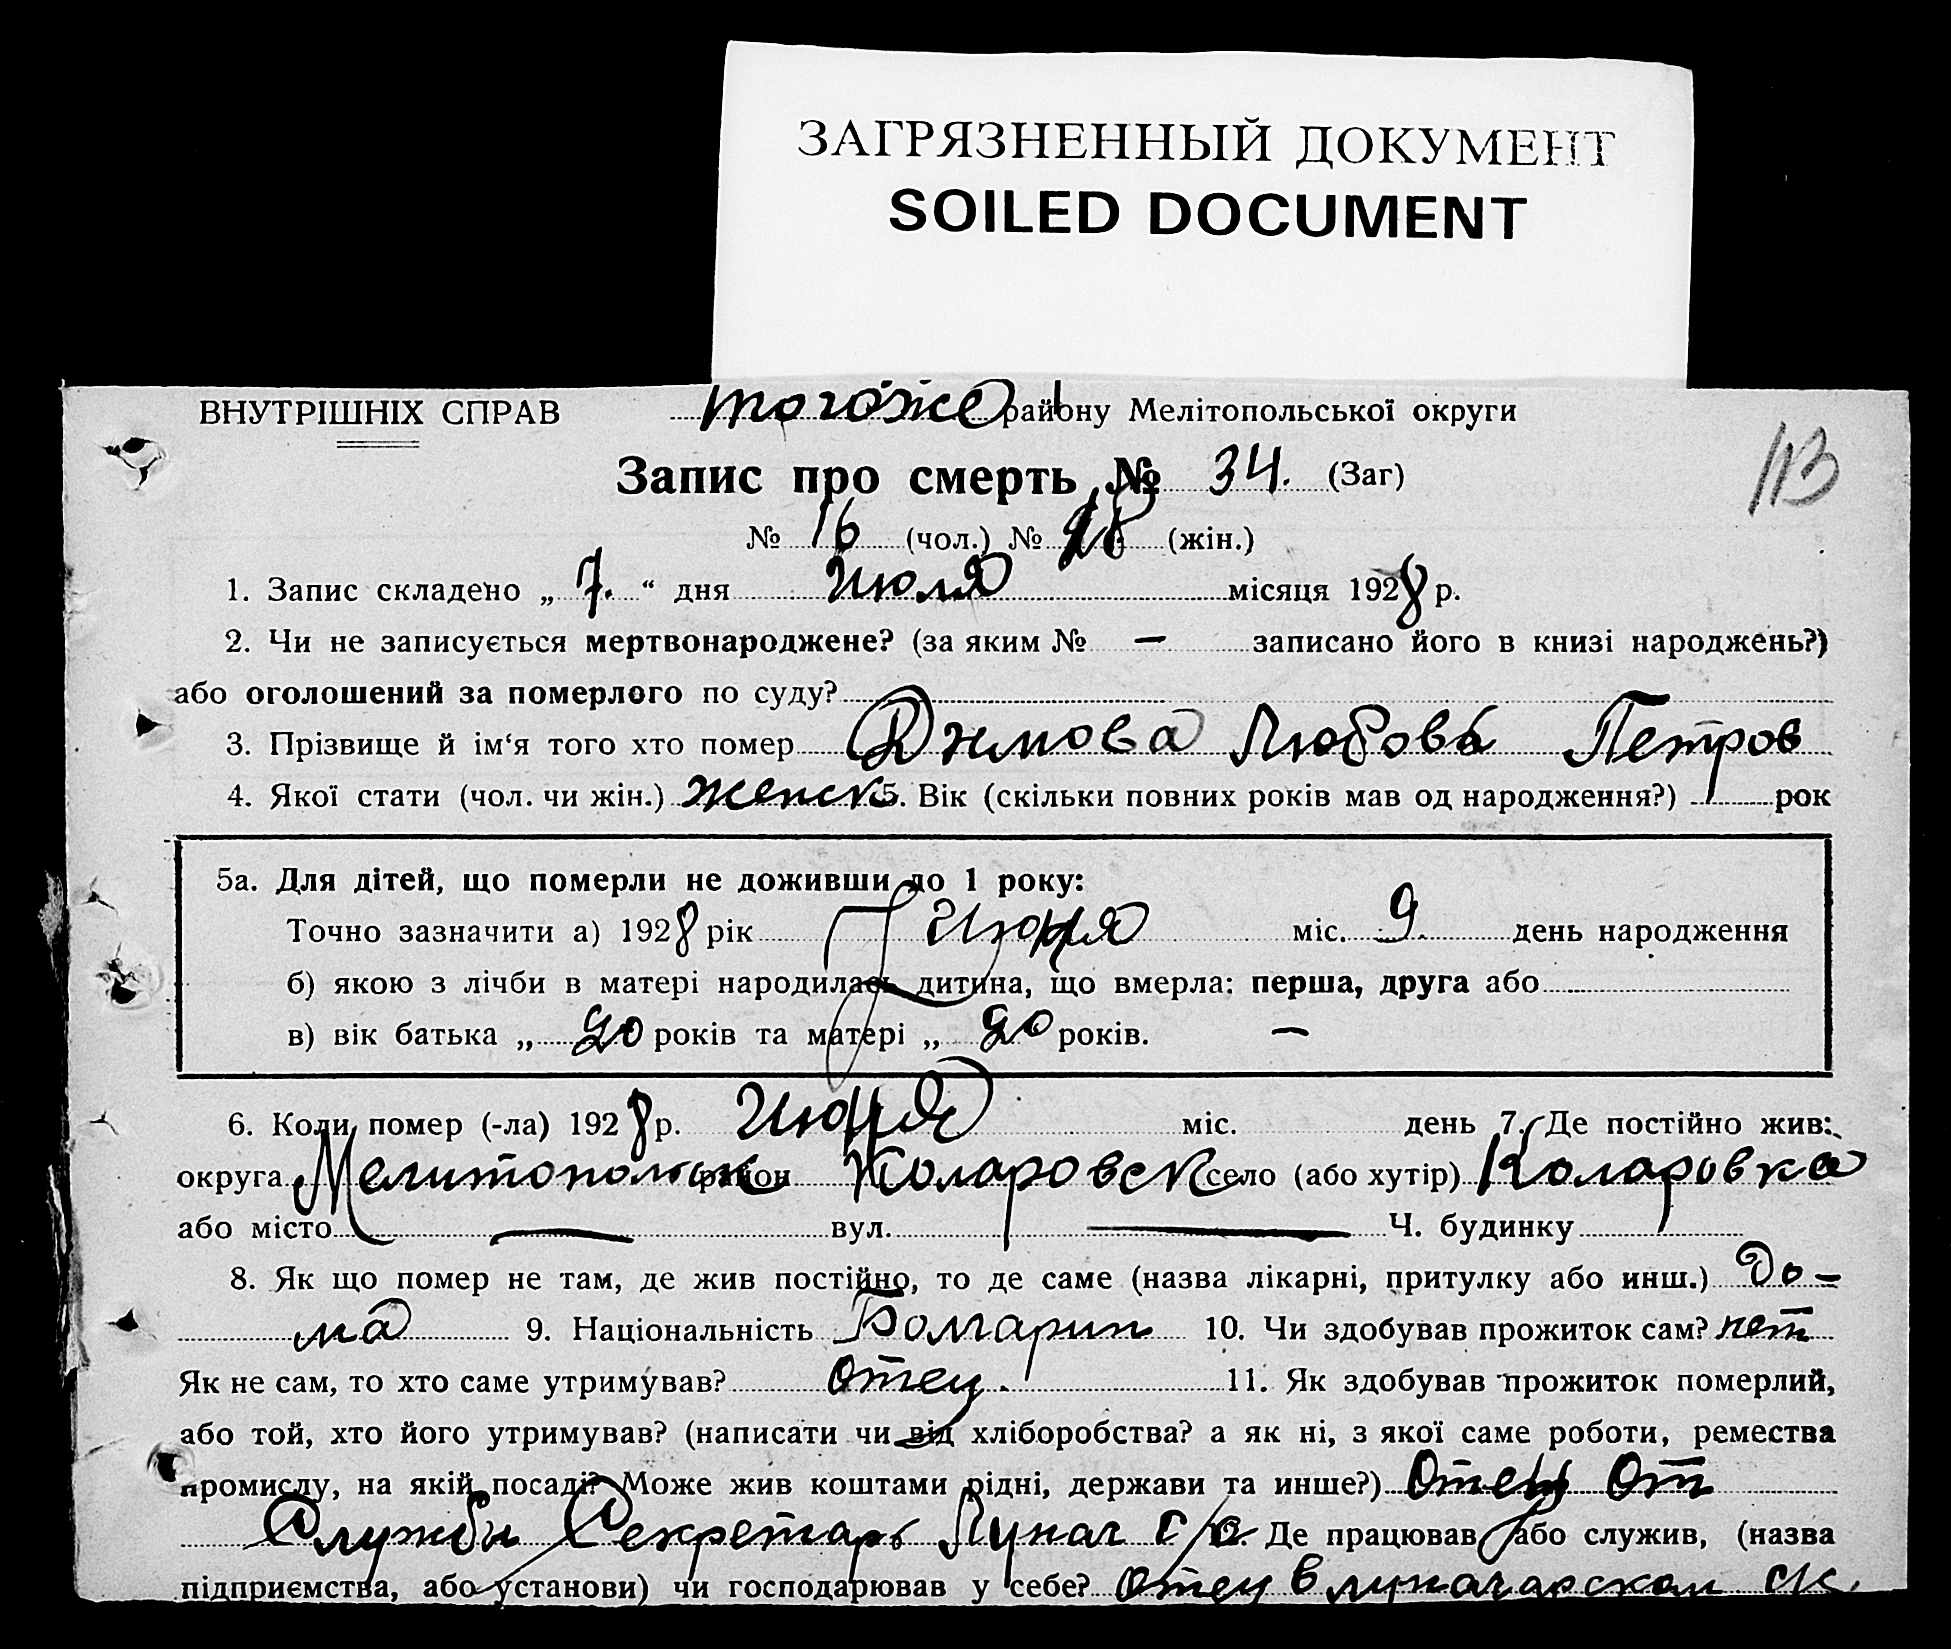 ЗАГРЯЗНЕННЫЙ ДОКУМЕНТ
SOILED DOCUMENT
ВНУТРІШНІХ СПРАВ тогоже району Мелітопольської округи
113
Запис про смерть № 34. (Заг)
№ 16 (чол.) № 18 (жін.)
1. Запис складено „ 7. “ дня Июля місяця 1928 р.
2. Чи не записується мертвонароджене? (за яким № — записано його в книзі народжень?)
або оголошений за померлого по суду?
3. Прізвище й ім‘я того хто помер Димова Любовь Петров
4. Якої стати (чол. чи жін.) женск 5. Вік (скільки повних років мав од народження?) рок
5а. Для дітей, що померли не доживши до 1 року:
Точно зазначити а) 1928 рік Июня міс. 9. день народження
б) якою з лічби в матері народилась дитина, що вмерла: перша, друга або
в) вік батька „ 20 років та матері „ 20 років. —
6. Коли помер (-ла) 1928 р. Июня міс. день 7. Де постійно жив:
округа Мелитопольск район Коларовск село (або хутір) Коларовка
або місто — вул. — Ч. будинку
8. Як що помер не там, де жив постійно, то де саме (назва лікарні, притулку або инш.) До-
ма 9. Національність Болгарин 10. Чи здобував прожиток сам? нет
Як не сам, то хто саме утримував? отец. 11. Як здобував прожиток померлий,
або той, хто його утримував? (написати чи від хліборобства? а як ні, з якої саме роботи, ремества
промислу, на якій посаді? Може жив коштами рідні, держави та инше?) Отец От
Службы Секретарь Лунач с/с Де працював або служив, (назва
підприємства, або установи) чи господарював у себе? Отец в луначарском с/с.